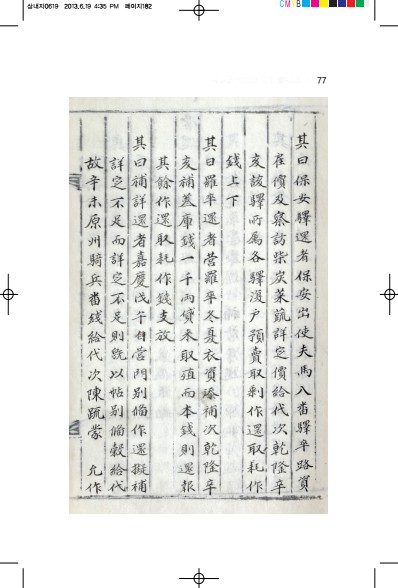 심내지0619 2013.6.19 4:35 PM 페이지182
CMYB
77
其曰保安驛還者保安出使夫馬入番驛卒路資
雇價及察訪柴炭菜蔬詳定價給代次乾隆辛
亥該驛所属各驛復戶預賣取剩作還取耗作
錢上下
其曰羅卒還者營羅卒冬夏衣資添補次乾隆辛
亥補蓋庫錢一千兩貸来取殖而本錢則還報
其餘作還取耗作錢支放
其曰補詳還者嘉慶戊午自營門別俻作還擬補
詳定不足而詳定不足則旣以帖別俻穀給代
故辛未原州騎兵番錢給代次陳䟽蒙 允作